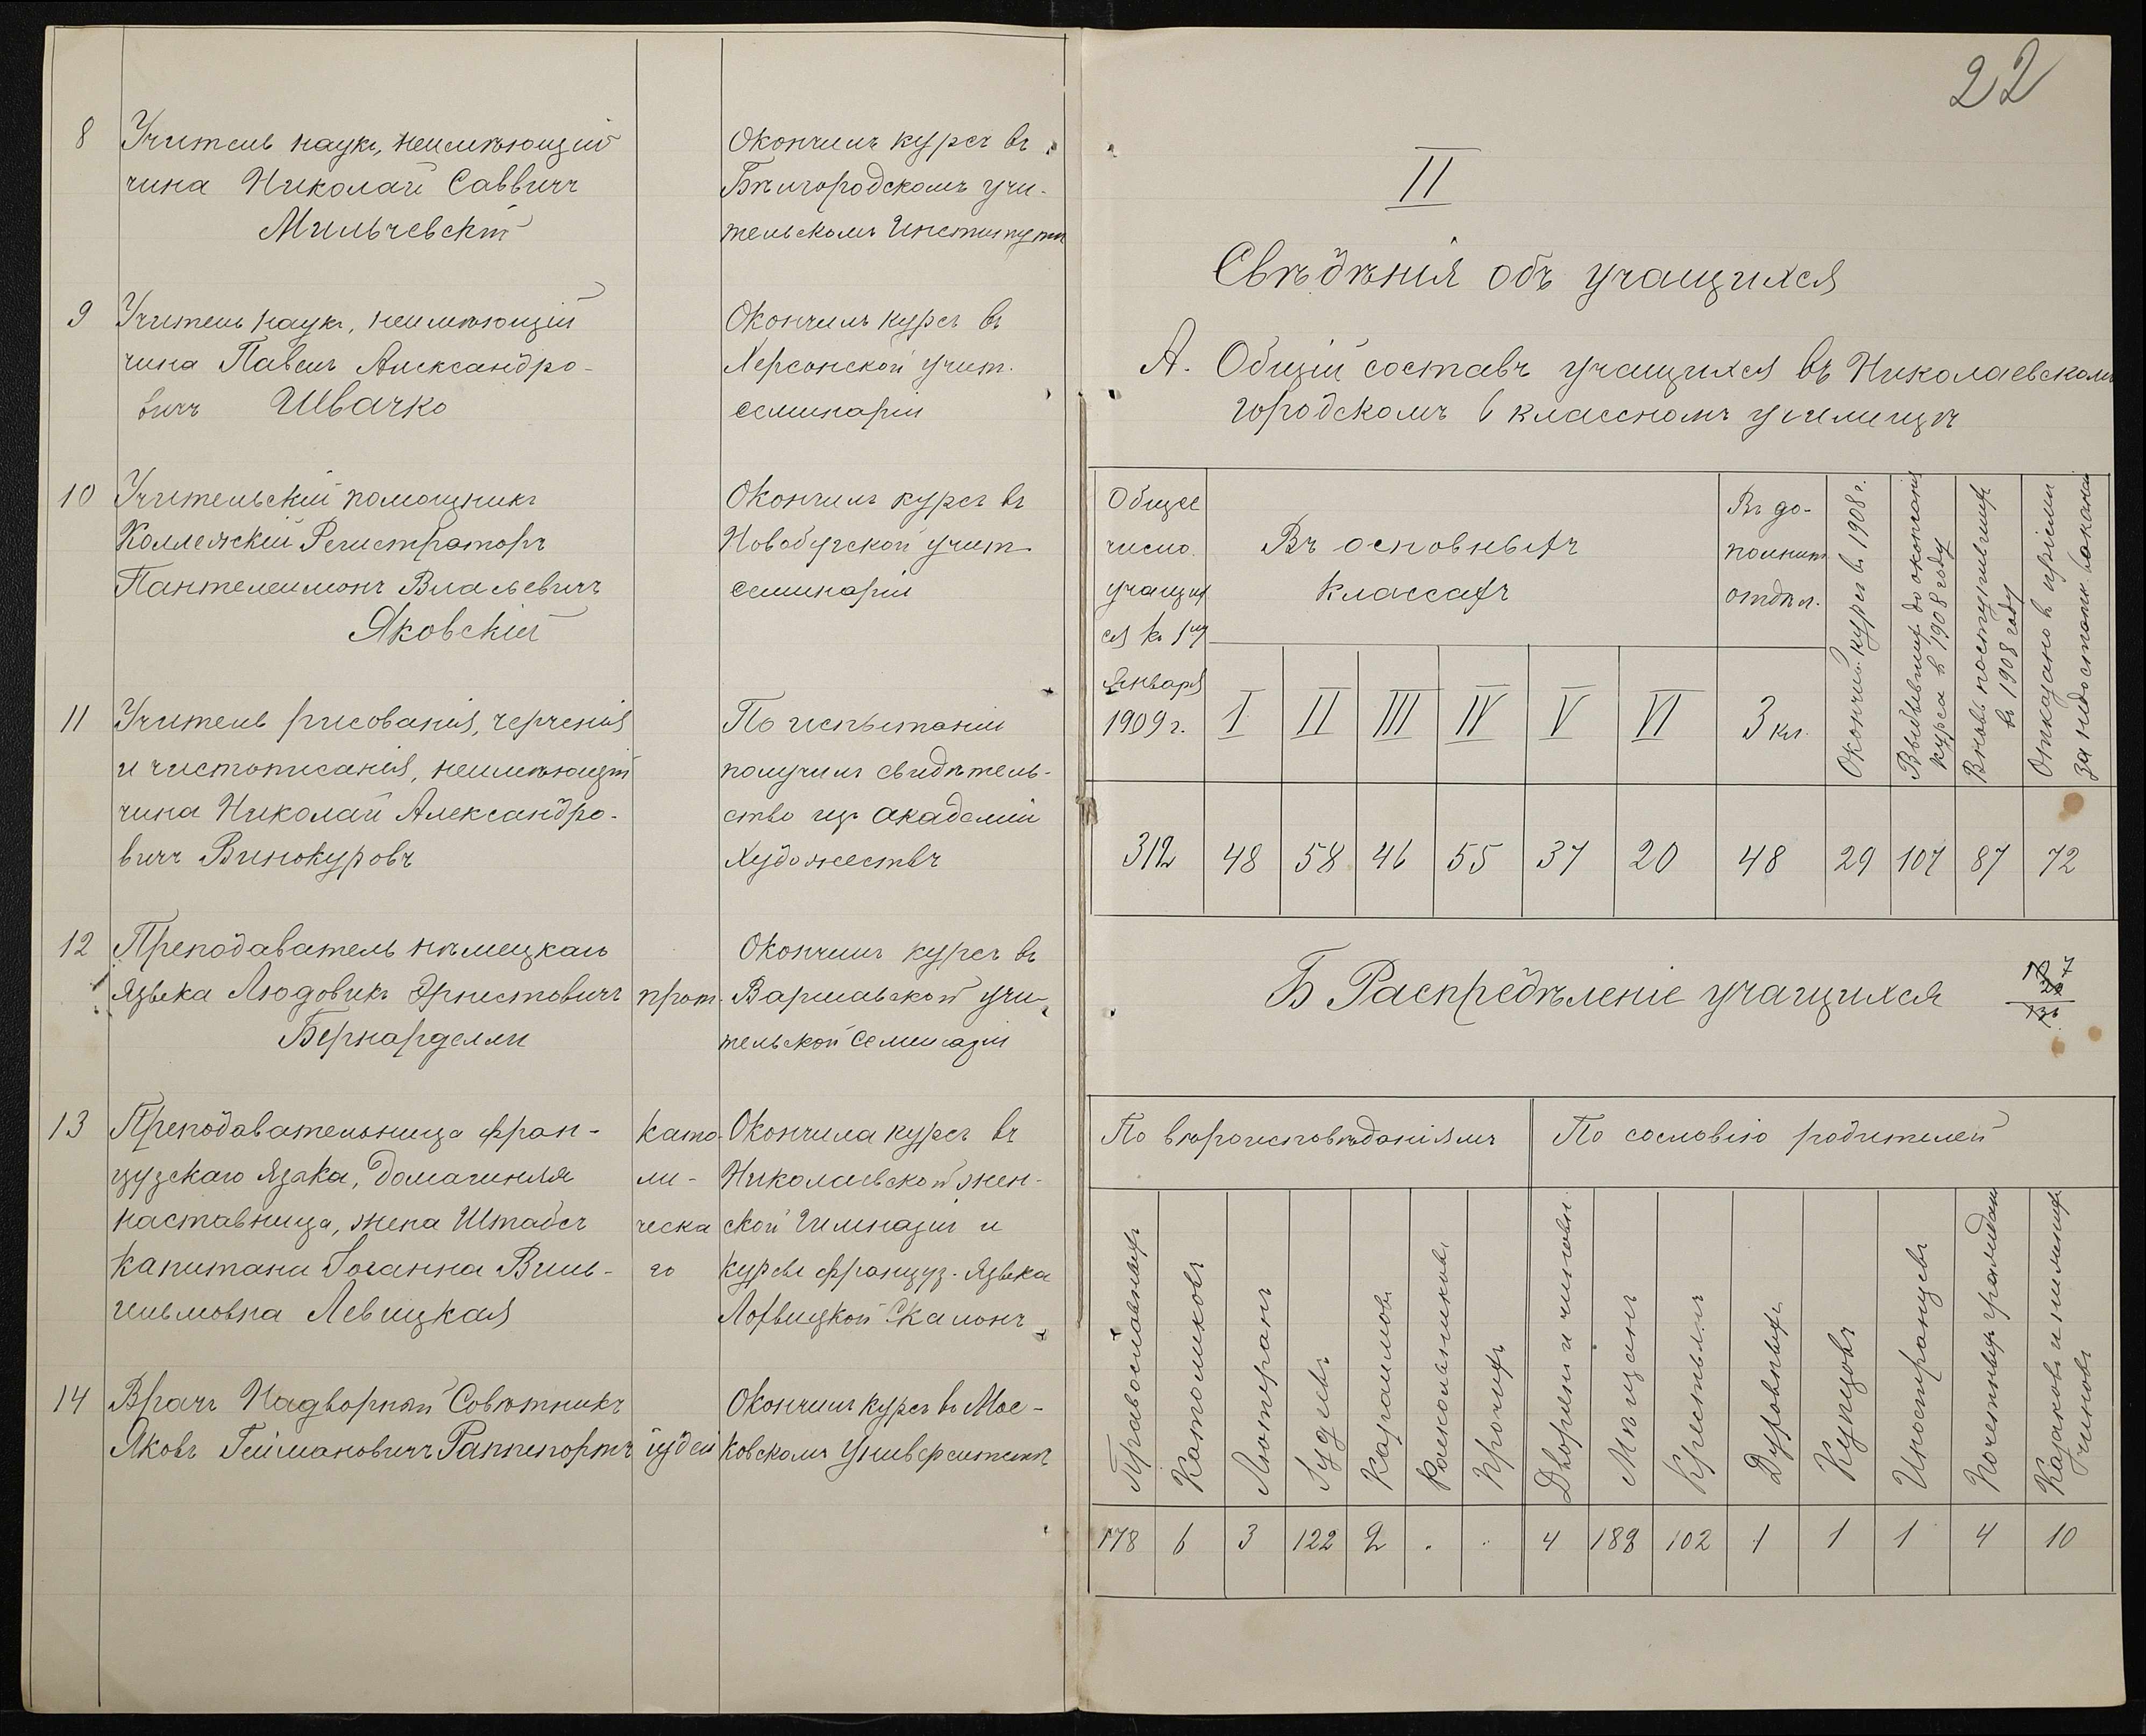 8 Учитель наукъ, неимѣющій
чина Николай Саввичъ
Мильчевскій
Окончилъ курсъ въ
Бѣлгородскомъ учи-
тельскомъ Институтѣ
9 Учитель наукъ, неимѣющій
чина Павелъ Александро-
вичъ Швачко
Окончилъ курсъ въ
Херсонской учит.
семинаріи
10 Учительскій помощникъ
Коллежскій Регистраторъ
Пантелеимонъ
Яковскій
Окончилъ курсъ въ
Новобугской учит.
семинаріи
11 Учитель рисованія, черченія
и чистописанія, неимѣющій
чина Николай Александро-
вичъ Винокуровъ
По испытаніи
получилъ свидѣтель-
ство изъ Академіи
Художествъ
12 Преподаватель нѣмецкаго
языка Людовикъ Эрнстовичъ
Бернарделли
прот.
Окончилъ курсъ въ
Варшавской учи-
тельской Семинаріи
13 Преподавательница фран-
цузскаго языка, домашняя
наставница, жена Штабсъ
Капитана Іоганна Виль-
гельмовна Левицкая
като-
ли-
ческа
го
Окончила курсъ въ
Николаевской жен-
ской Гимназіи и
курсы француз. языка
Лохвицкой Скалонъ
14 Врачъ Надворный Совѣтникъ
Яковъ Геймановичъ Раппопортъ
іудей
Окончилъ курсъ въ Мос-
ковскомъ Университетѣ
22
II
Свѣдѣнія объ учащихся
А. Общій составъ учащихся въ Николаевскомъ
городскомъ 6 классномъ училищѣ
Общее
число
учащих
ся къ 1му
Января
1909 г.
Въ основныхъ
классахъ
I II III IV V VI
Въ до-
полнит.
отдѣл.
3 кл.
Окончил. курсъ въ 1908 г.
Выбывшихъ до окончанія
курса въ 1908 году
Вновь поступившихъ
въ 1908 году
Отказано въ пріемѣ
за недостатк. вакансій
312 48 58 46 55 37 20 48 29 107 87 72
Б Распредѣленіе учащихся
По вѣроисповѣданіямъ
По сословію родителей
Православныхъ
Католиковъ
Лютеранъ
Іудеевъ
Караимовъ
Раскольниковъ
Прочихъ
Дворянъ и чиновн.
Мѣщанъ
Крестьянъ
Духовныхъ
Купцовъ
Иностранцевъ
Почетныхъ гражданъ
Казаковъ и нижнихъ
чиновъ
178 6 3 122 2 . . 4 189 102 1 1 1 4 10